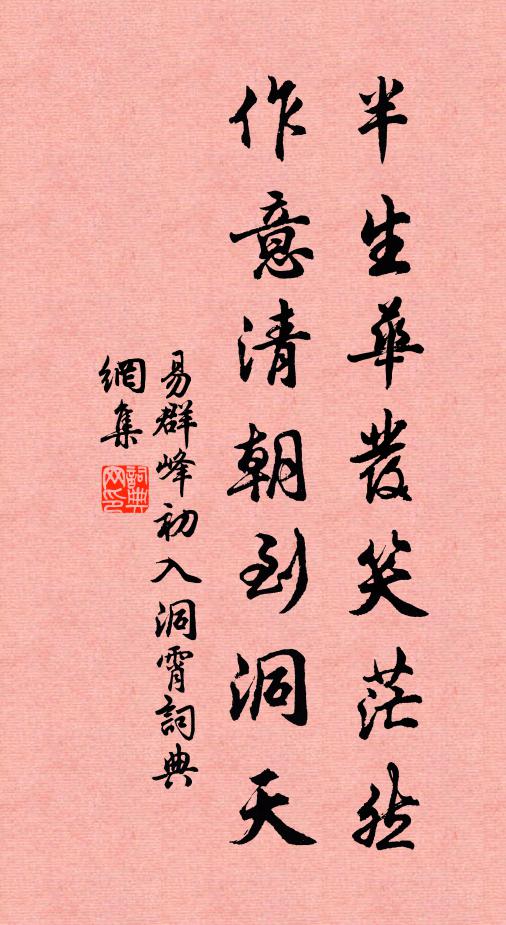 半生華發笑茫然
作意清朝到洞天
易群峰初入洞霄詞典
網集
詞典
网印